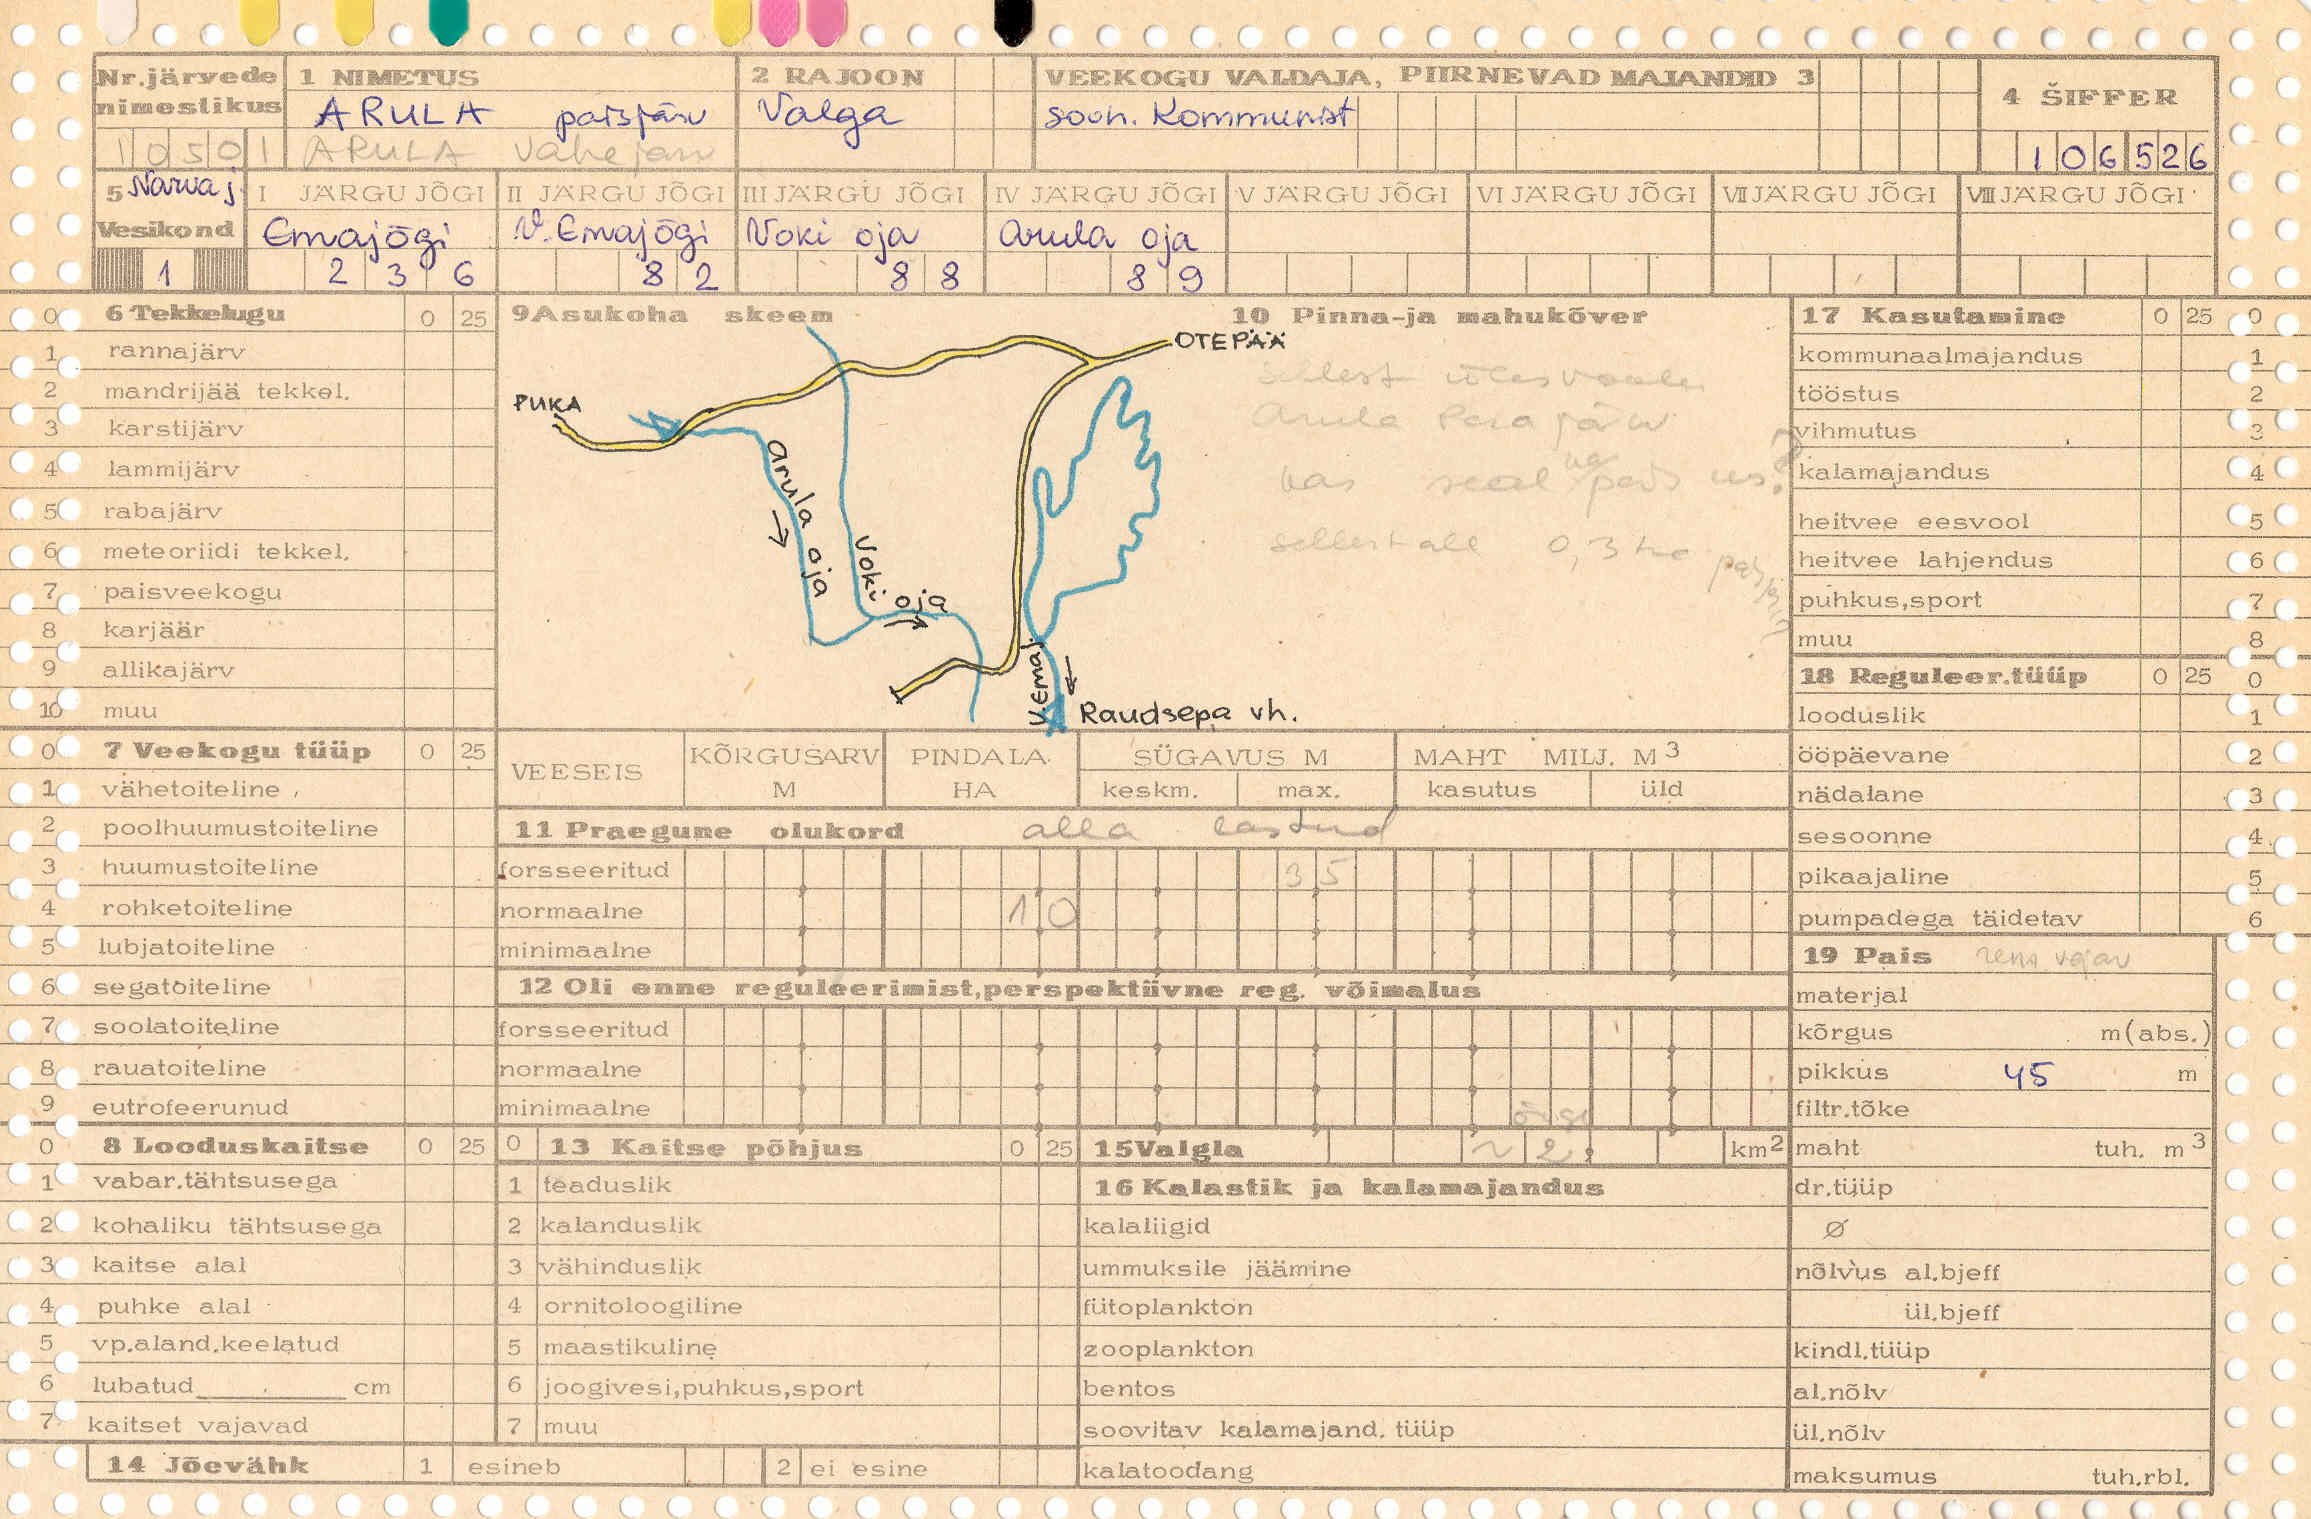 Nr.järvede nimestikus
1 NIMETUS
2 RAJOON
VEEKOGU VALDAJA, PIIRNEVAD MAJANDID 3
4 ŠIFFER
ARULA paisjärv
Valga
sovh. Kommunist
10501
ARULA Vahejärv
106526
5 Narva j. Vesikond
I JÄRGU JÕGI
II JÄRGU JÕGI
III JÄRGU JÕGI
IV JÄRGU JÕGI
V JÄRGU JÕGI
VI JÄRGU JÕGI
VII JÄRGU JÕGI
VIII JÄRGU JÕGI
Emajõgi
V. Emajõgi
Voki oja
Arula oja
1
2 3 6
8 2
8 8
8 9
0 6 Tekkelugu 0 25
1 rannajärv
2 mandrijää tekkel.
3 karstijärv
4 lammijärv
5 rabajärv
6 meteoriidi tekkel.
7 paisveekogu
8 karjäär
9 allikajärv
10 muu
9 Asukoha skeem
OTEPÄÄ
PUKA
Arula oja
Voki oja
V.Emaj.
Raudsepa vh.
10 Pinna-ja mahukõver
sellest ülesvoolu
Arula Pera järv
kas seal ka pais us?
sellest all 0,3 ha paisjärv
17 Kasutamine 0 25 0
kommunaalmajandus 1
tööstus 2
vihmutus 3
kalamajandus 4
heitvee eesvool 5
heitvee lahjendus 6
puhkus,sport 7
muu 8
18 Reguleer.tüüp 0 25 0
looduslik 1
ööpäevane 2
nädalane 3
sesoonne 4
pikaajaline 5
pumpadega täidetav 6
0 7 Veekogu tüüp 0 25
1 vähetoiteline
2 poolhuumustoiteline
3 huumustoiteline
4 rohketoiteline
5 lubjatoiteline
6 segatoiteline
7 soolatoiteline
8 rauatoiteline
9 eutrofeerunud
VEESEIS
KÕRGUSARV M
PINDALA HA
SÜGAVUS M
keskm. max.
MAHT MILJ. M3
kasutus üld
11 Praegune olukord alla lastud
forsseeritud 35
normaalne 10
minimaalne
12 Oli enne reguleerimist,perspektiivne reg. võimalus
forsseeritud
normaalne
minimaalne
19 Pais
materjal
kõrgus m(abs.)
pikkus 45 m
filtr.tõke
maht tuh. m3
dr.tüüp
Ø
nõlvus al.bjeff
ül.bjeff
kindl.tüüp
al.nõlv
ül.nõlv
maksumus tuh.rbl.
0 8 Looduskaitse 0 25
1 vabar.tähtsusega
2 kohaliku tähtsusega
3 kaitse alal
4 puhke alal
5 vp.aland.keelatud
6 lubatud cm
7 kaitset vajavad
0 13 Kaitse põhjus 0 25
1 teaduslik
2 kalanduslik
3 vähinduslik
4 ornitoloogiline
5 maastikuline
6 joogivesi,puhkus,sport
7 muu
15 Valgla ~ 2 km2
16 Kalastik ja kalamajandus
kalaliigid
ummuksile jäämine
fütoplankton
zooplankton
bentos
soovitav kalamajand. tüüp
kalatoodang
14 Jõevähk 1 esineb 2 ei esine